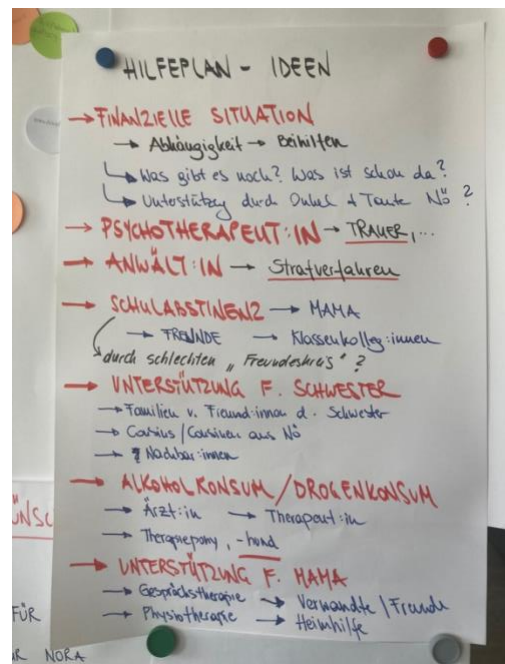 HILFEPLAN - IDEEN
→ FINANZIELLE SITUATION
→ Abhängigkeit → Beihilfen
↳ Was gibt es noch? Was ist schon da?
↳ Unterstützg durch Onkel + Tante NÖ ?
→ PSYCHOTHERAPEUT:IN → TRAUER,...
→ ANWÄLT:IN → Strafverfahren
→ SCHULABSTINENZ → MAMA
→ FREUNDE → Klassenkolleg:innen
durch schlechten „Freundeskreis" ?
→ UNTERSTÜTZUNG F. SCHWESTER
→ Familien v. Freund:innen d. Schwester
→ Cousins / Cousinen aus NÖ
→ ? Nachbar:innen
→ ALKOHOLKONSUM / DROGENKONSUM
→ Ärzt:in → Therapeut:in
→ Therapiepony, -hund
→ UNTERSTÜTZUNG F. MAMA
→ Gesprächstherapie → Verwandte / Freunde
→ Physiotherapie → Heimhilfe
ÜNSC
FÜR
NORA